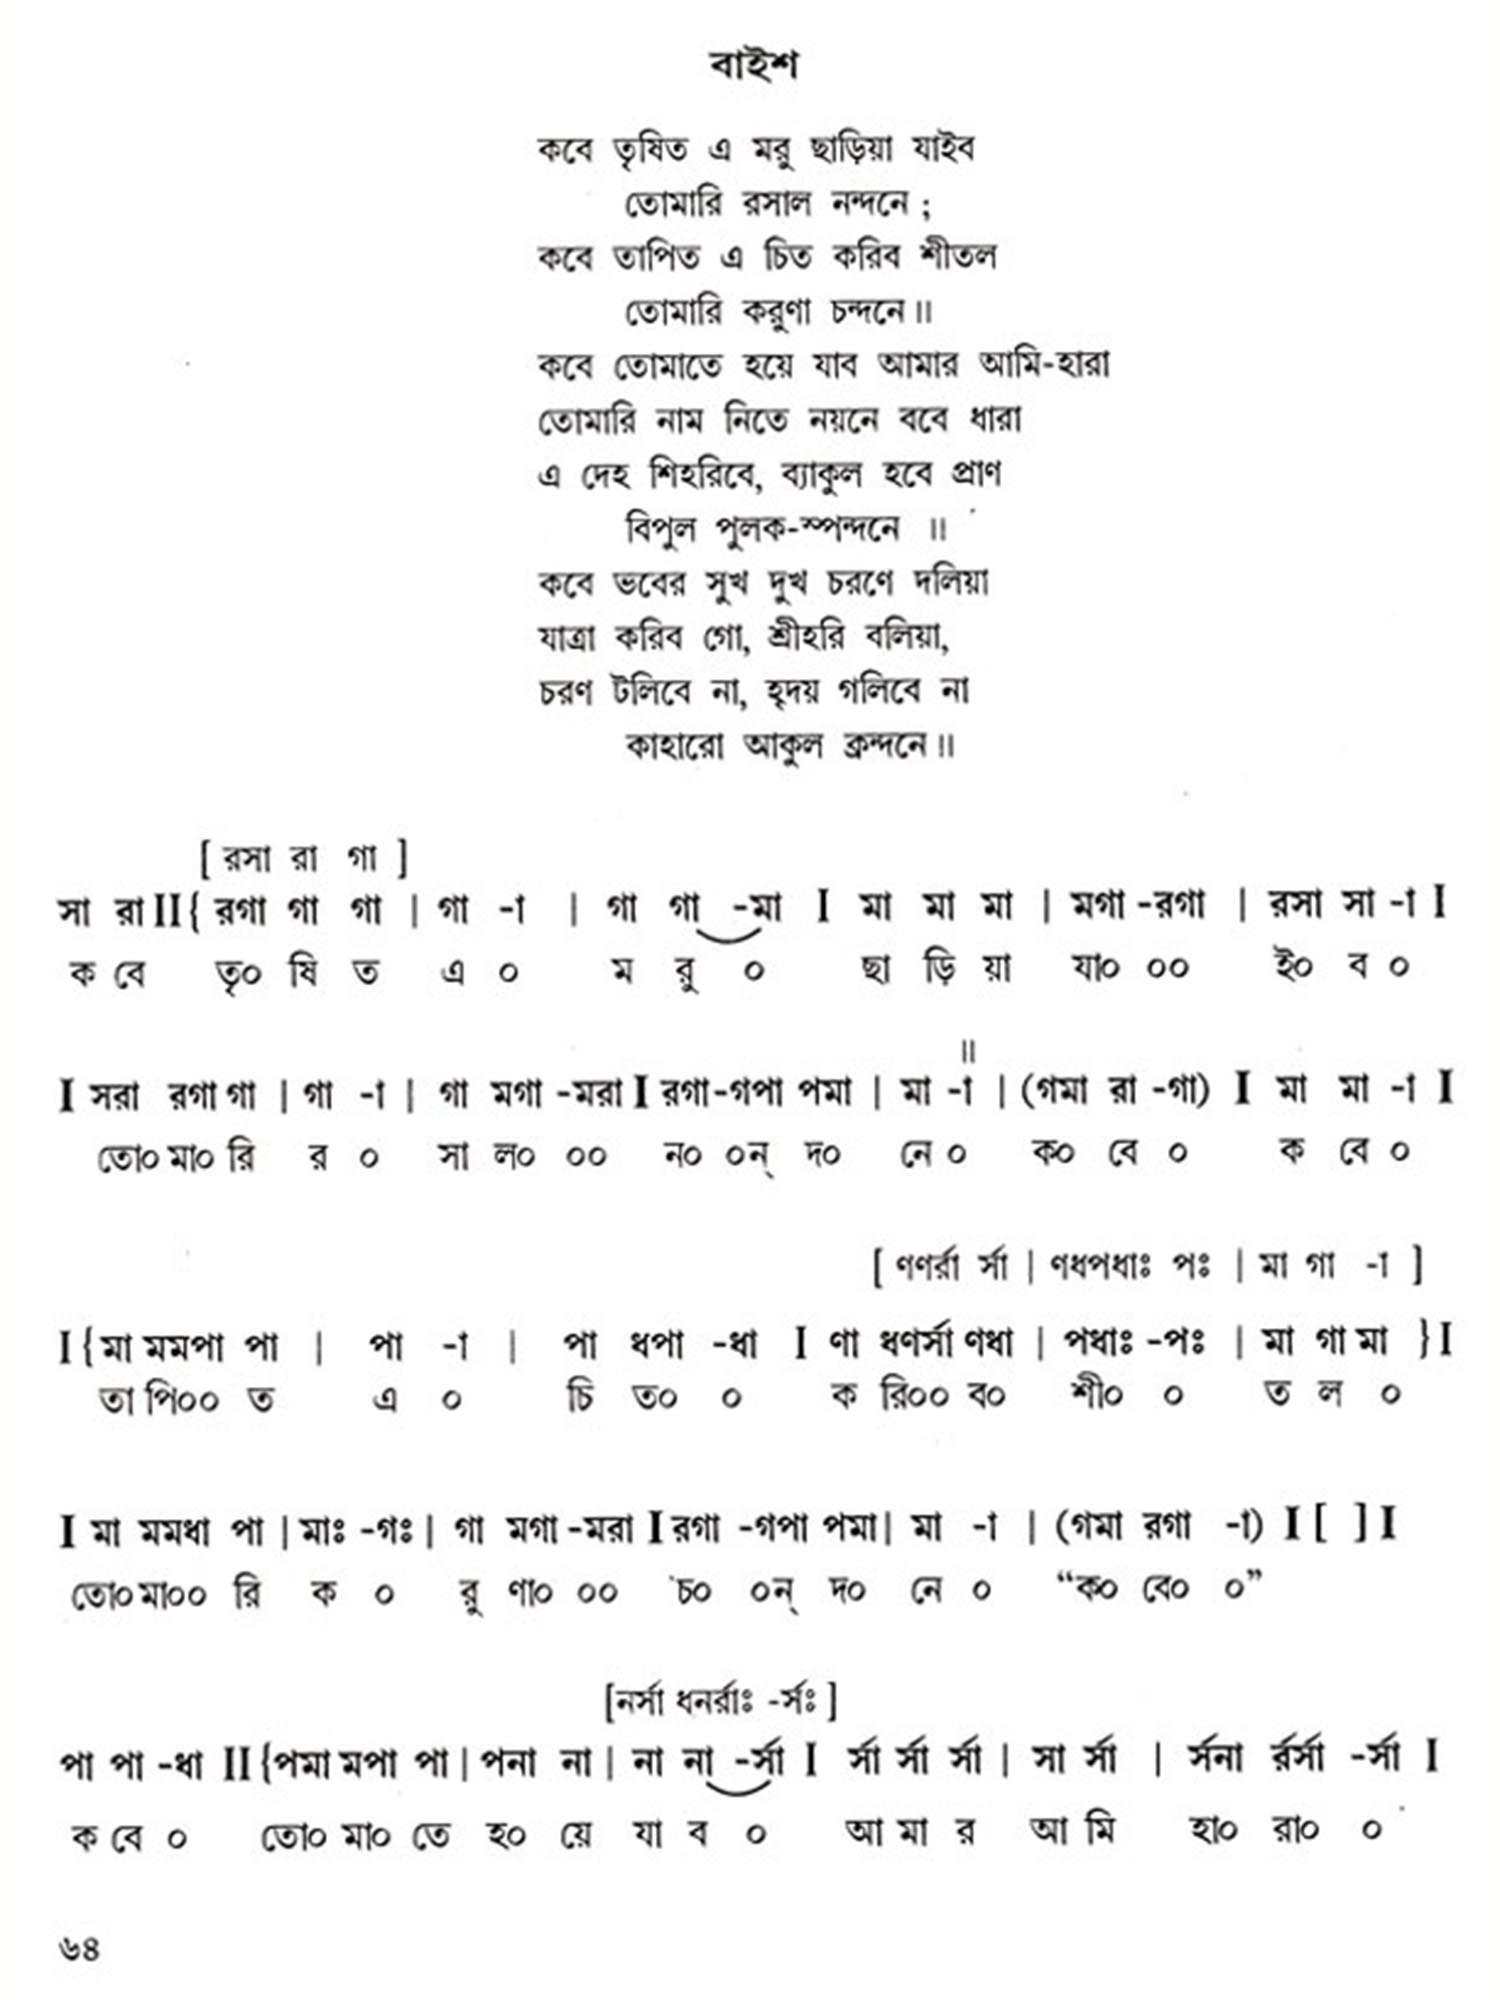 বাইশ
কবে তৃষিত এ মরু ছাড়িয়া যাইব
তোমারি রসাল নন্দনে ;
কবে তাপিত এ চিত করিব শীতল
তোমারি করুণা চন্দনে॥
কবে তোমাতে হয়ে যাব আমার আমি-হারা
তোমারি নাম নিতে নয়নে ববে ধারা
এ দেহ শিহরিবে, ব্যাকুল হবে প্রাণ
বিপুল পুলক-স্পন্দনে ॥
কবে ভবের সুখ দুখ চরণে দলিয়া
যাত্রা করিব গো, শ্রীহরি বলিয়া,
চরণ টলিবে না, হৃদয় গলিবে না
কাহারো আকুল ক্রন্দনে॥
[ রসা রা গা ]
সা রা II { রগা গা গা | গা -া | গা গা -মা I মা মা মা | মগা -রগা | রসা সা -া I
ক বে তৃ০ ষি ত এ ০ ম রু ০ ছা ড়ি য়া যা০ ০০ ই০ ব ০
॥
I সরা রগা গা | গা -া | গা মগা -মরা I রগা -গপা পমা | মা -া | (গমা রা -গা) I মা মা -া I
তো০ মা০ রি র ০ সা ল০ ০০ ন০ ০ন্ দ০ নে ০ ক০ বে ০ ক বে ০
[ ণণর্রা র্সা | ণধপধাঃ পঃ | মা গা -া ]
I { মা মমপা পা | পা -া | পা ধপা -ধা I ণা ধণর্সা ণধা | পধাঃ -পঃ | মা গা মা } I
তা পি০০ ত এ ০ চি ত০ ০ ক রি০০ ব০ শী০ ০ ত ল ০
I মা মমধা পা | মাঃ -গঃ | গা মগা -মরা I রগা -গপা পমা | মা -া | (গমা রগা -া) I [ ] I
তো০ মা০০ রি ক ০ রু ণা০ ০০ চ০ ০ন্ দ০ নে ০ “ক০ বে০ ০”
[নর্সা ধনর্রাঃ -র্সঃ ]
পা পা -ধা II {পমা মপা পা | পনা না | না না -র্সা I র্সা র্সা র্সা | সা র্সা | র্সনা র্রর্সা -র্সা I
ক বে ০ তো০ মা০ তে হ০ য়ে যা ব ০ আ মা র আ মি হা০ রা০ ০
৬৪